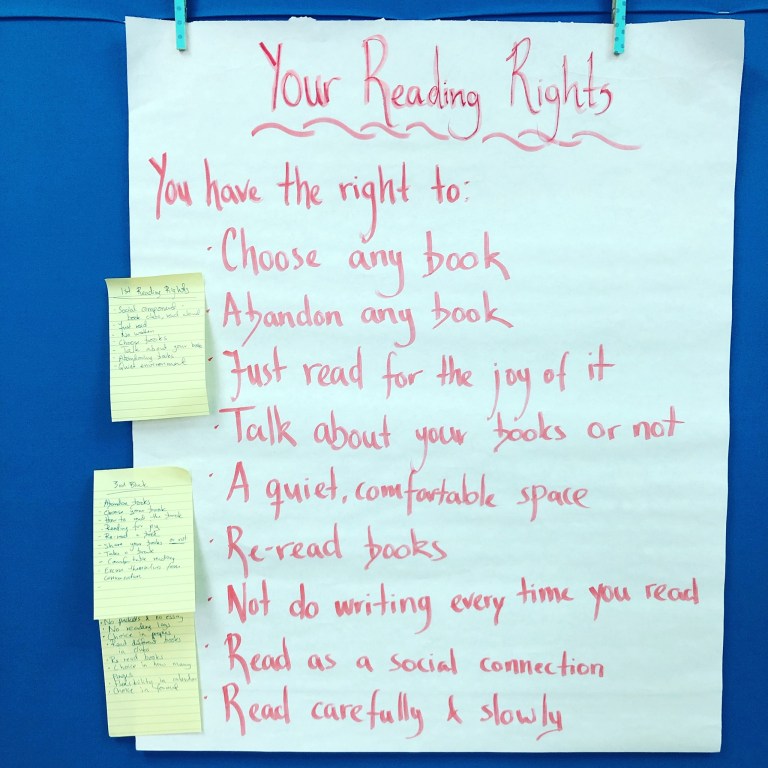 Your Reading Rights
You have the right to:
· Choose any book
· Abandon any book
· Just read for the joy of it
· Talk about your books or not
· A quiet, comfortable space
· Re-read books
· Not do writing every time you read
· Read as a social connection
· Read carefully & slowly
1st Reading Rights
- Social component -
book clubs, read aloud
- Just read
- No written
- Choose books
- talk about your books
- Abandoning books
- Quiet environment
3rd Block
- Abandon books
- Choose your book
- How to get the book
- Reading for fun
- Re-read a book
- Share your books or not
- Take a book
- Comfortable reading
- Excuse themselves from
conversation
- No packets & no essay
- No reading logs
- Choice in
- Read different books
in class
- Re read books
- Choice in how many
pages
- Flexibility in
- Choice in format